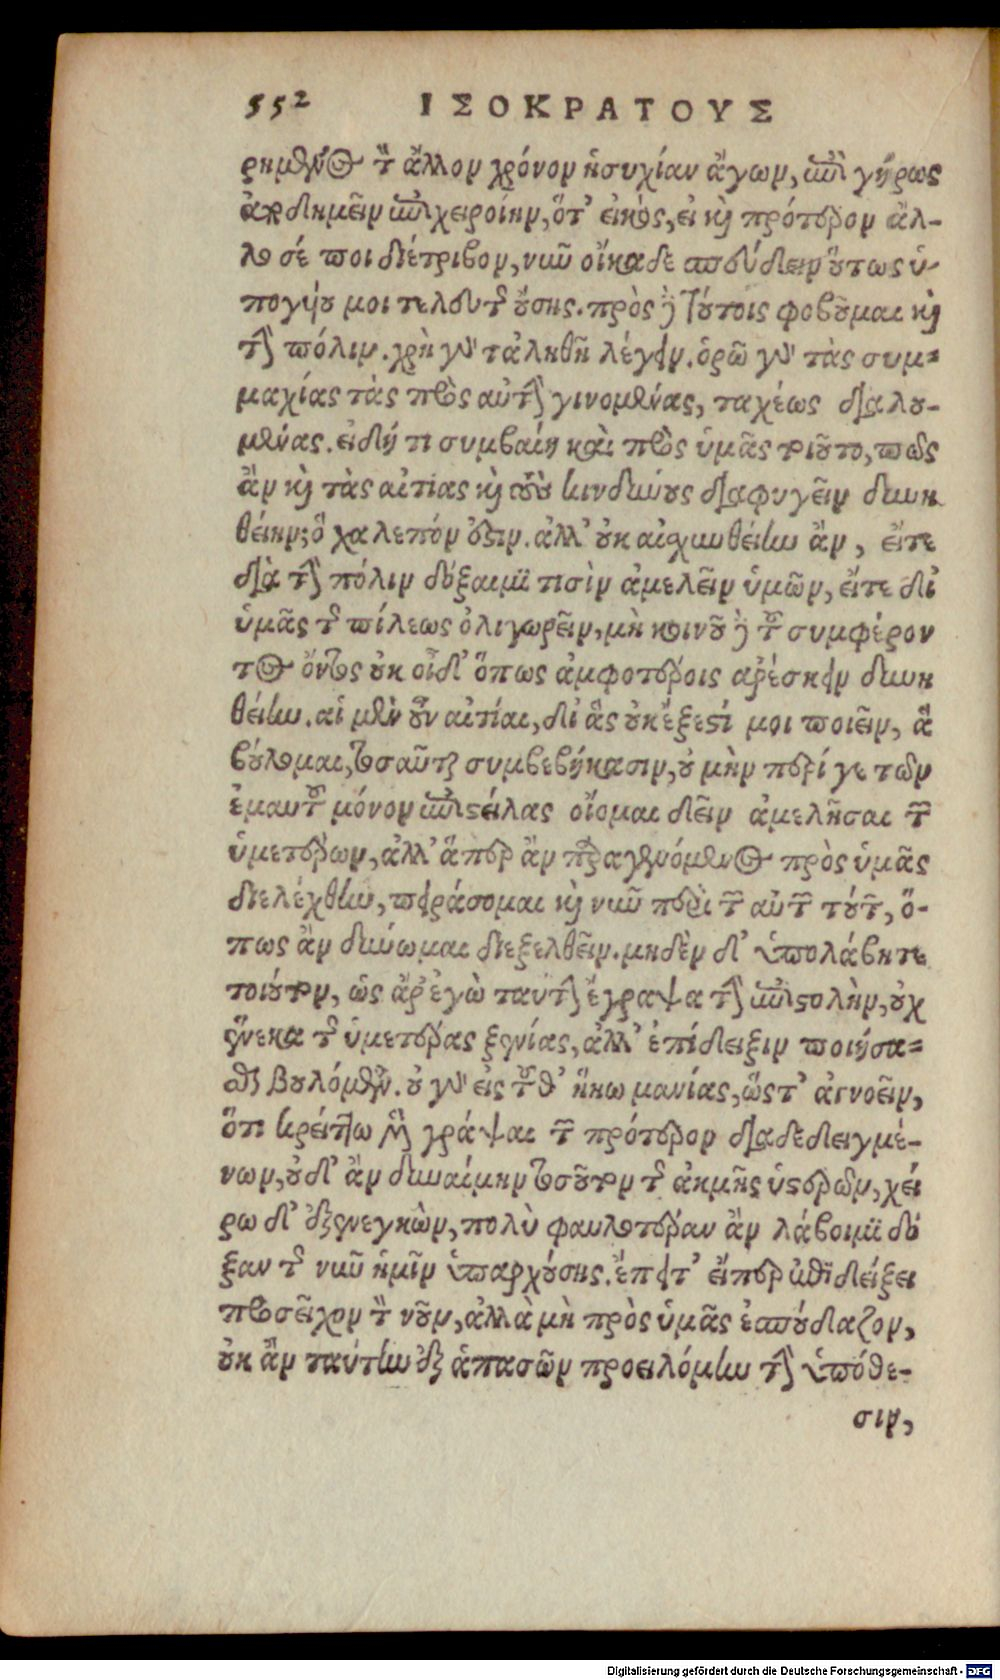 552 ΙΣΟΚΡΑΤΟΥΣ
ρημένος τὸν ἄλλον χρόνον ἡσυχίαν ἄγων, ἐπὶ γήρως
ἀποδημεῖν ἐπιχειροίην, ὅτ' εἰκὸς, εἰ καὶ πρότερον ἄλ-
λοσέ ποι διέτριβον, νῦν οἴκαδε σπεύδειν οὕτως ὑ-
πογύου μοι τελευτῆς οὔσης. πρὸς δὲ τούτοις φοβοῦμαι καὶ
τὴν πόλιν. χρὴ γὰρ τἀληθῆ λέγειν. ὁρῶ γὰρ τὰς συμ-
μαχίας τὰς πρὸς αὐτὴν γινομένας, ταχέως διαλυο-
μένας. εἰ δή τι συμβαίη καὶ πρὸς ὑμᾶς τοιοῦτο, πῶς
ἂν καὶ τὰς αἰτίας καὶ τοὺς κινδύνους διαφυγεῖν δυνη
θείην; ὃ χαλεπόν ἐστιν. ἀλλ' οὐκ αἰσχυνθείην ἂν, εἴτε
διὰ τὴν πόλιν δόξαιμί τισὶν ἀμελεῖν ὑμῶν, εἴτε δι'
ὑμᾶς τῆς πόλεως ὀλιγωρεῖν, μὴ κοινοῦ δὲ τοῦ συμφέρον
τος ὄντος οὐκ οἶδ' ὅπως ἀμφοτέροις ἀρέσκειν δυνη
θείην. αἱ μὲν οὖν αἰτίαι, δι' ἃς οὐκ ἔξεστί μοι ποιεῖν, ἃ
βούλομαι, τοσαῦται συμβεβήκασιν, οὐ μὴν περί γε τῶν
ἐμαυτοῦ μόνον ἐπιστείλας οἴομαι δεῖν ἀμελῆσαι τῶν
ὑμετέρων, ἀλλ' ἅπερ ἂν παραγενόμενος πρὸς ὑμᾶς
διελέχθην, πειράσομαι καὶ νῦν περὶ τῶν αὐτῶν τούτων, ὅ-
πως ἂν δύνωμαι διεξελθεῖν. μηδὲν δ' ὑπολάβητε
τοιοῦτον, ὡς ἄρ' ἐγὼ ταύτην ἔγραψα τὴν ἐπιστολὴν, οὐχ
ἕνεκα τῆς ὑμετέρας ξενίας, ἀλλ' ἐπίδειξιν ποιήσα-
σθαι βουλόμενος. οὐ γὰρ εἰς τοῦθ' ἥκω μανίας, ὥστ' ἀγνοεῖν,
ὅτι κρείττω μὲν γράψαι τῶν πρότερον διαδεδειγμέ-
νων, οὐδ' ἂν δυναίμην τοσοῦτον τῆς ἀκμῆς ὑστερῶν, χεί
ρω δ' ἐξενεγκὼν, πολὺ φαυλοτέραν ἂν λάβοιμι δό
ξαν τῆς νῦν ἡμῖν ὑπαρχούσης. ἔπειτ' εἴπερ ἐπιδείξει
προσεῖχον τὸν νοῦν, ἀλλὰ μὴ πρὸς ὑμᾶς ἐσπούδαζον,
οὐκ ἂν ταύτην ἐξ ἁπασῶν προειλόμην τὴν ὑπόθε-
σιν,
Digitalisierung gefördert durch die Deutsche Forschungsgemeinschaft - DFG